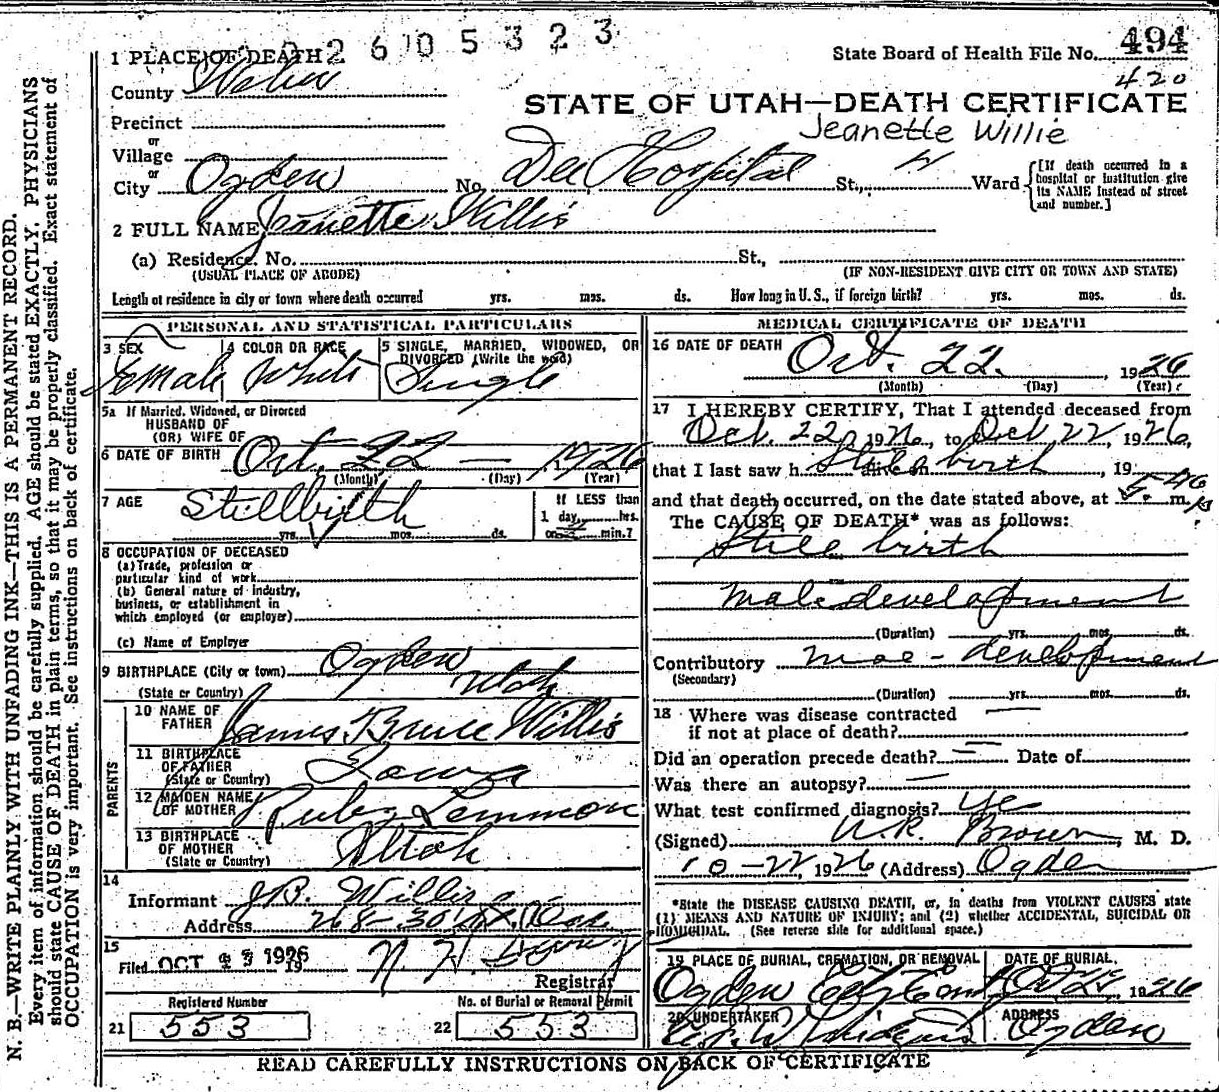 2 6 0 5 3 2 3
State Board of Health File No. 494
420
1 PLACE OF DEATH
County Weber
STATE OF UTAH—DEATH CERTIFICATE
Jeanette Willie
Precinct
or
Village
or
City Ogden No. Dee Hospital St., Ward
[If death occurred in a hospital or institution give its NAME instead of street and number.]
2 FULL NAME Jeanette Willis
(a) Residence. No. St.,
(USUAL PLACE OF ABODE) (IF NON-RESIDENT GIVE CITY OR TOWN AND STATE)
Length of residence in city or town where death occurred yrs. mos. ds. How long in U. S., if foreign birth? yrs. mos. ds.
PERSONAL AND STATISTICAL PARTICULARS
3 SEX 4 COLOR OR RACE 5 SINGLE, MARRIED, WIDOWED, OR
DIVORCED (Write the word)
Female White Single
5a If Married, Widowed, or Divorced
HUSBAND OF
(OR) WIFE OF
6 DATE OF BIRTH Oct. 22 — 1926
(Month) (Day) (Year)
7 AGE Stillbirth If LESS than
1 day, hrs.
yrs. mos. ds. or min.?
8 OCCUPATION OF DECEASED
(a) Trade, profession or
particular kind of work
(b) General nature of industry,
business, or establishment in
which employed (or employer)
(c) Name of Employer
9 BIRTHPLACE (City or town) Ogden
(State or Country) Utah
PARENTS
10 NAME OF
FATHER James Bruce Willis
11 BIRTHPLACE
OF FATHER Iowa
(State or Country)
12 MAIDEN NAME
OF MOTHER Ruby Lemmon
13 BIRTHPLACE
OF MOTHER Utah
(State or Country)
14
Informant J.B. Willis
Address 268-30th St. Ogden
15
Filed OCT 1926 19 N. H.
Registrar
Registered Number No. of Burial or Removal Permit
21 553 22 553
MEDICAL CERTIFICATE OF DEATH
16 DATE OF DEATH Oct. 22. , 1926
(Month) (Day) (Year)
17 I HEREBY CERTIFY, That I attended deceased from
Oct. 22, 1926, to Oct 22, 1926,
that I last saw h alive on Still birth, 19
and that death occurred, on the date stated above, at m.
The CAUSE OF DEATH* was as follows:
Still birth
Mal-development
(Duration) yrs. mos. ds.
Contributory Mal-development
(Secondary)
(Duration) yrs. mos. ds.
18 Where was disease contracted —
if not at place of death?
Did an operation precede death? — Date of
Was there an autopsy? —
What test confirmed diagnosis? yes
(Signed) W.R. Brown, M. D.
10-22, 1926 (Address) Ogden
*State the DISEASE CAUSING DEATH, or, in deaths from VIOLENT CAUSES state
(1) MEANS AND NATURE OF INJURY; and (2) whether ACCIDENTAL, SUICIDAL OR
HOMICIDAL. (See reverse side for additional space.)
19 PLACE OF BURIAL, CREMATION, OR REMOVAL DATE OF BURIAL.
Ogden City Cem 1926
20 UNDERTAKER ADDRESS
Ogden
READ CAREFULLY INSTRUCTIONS ON BACK OF CERTIFICATE
N. B.—WRITE PLAINLY WITH UNFADING INK—THIS IS A PERMANENT RECORD.
Every item of information should be carefully supplied. AGE should be stated EXACTLY. PHYSICIANS
should state CAUSE OF DEATH in plain terms, so that it may be properly classified. Exact statement of
OCCUPATION is very important. See instructions on back of certificate.